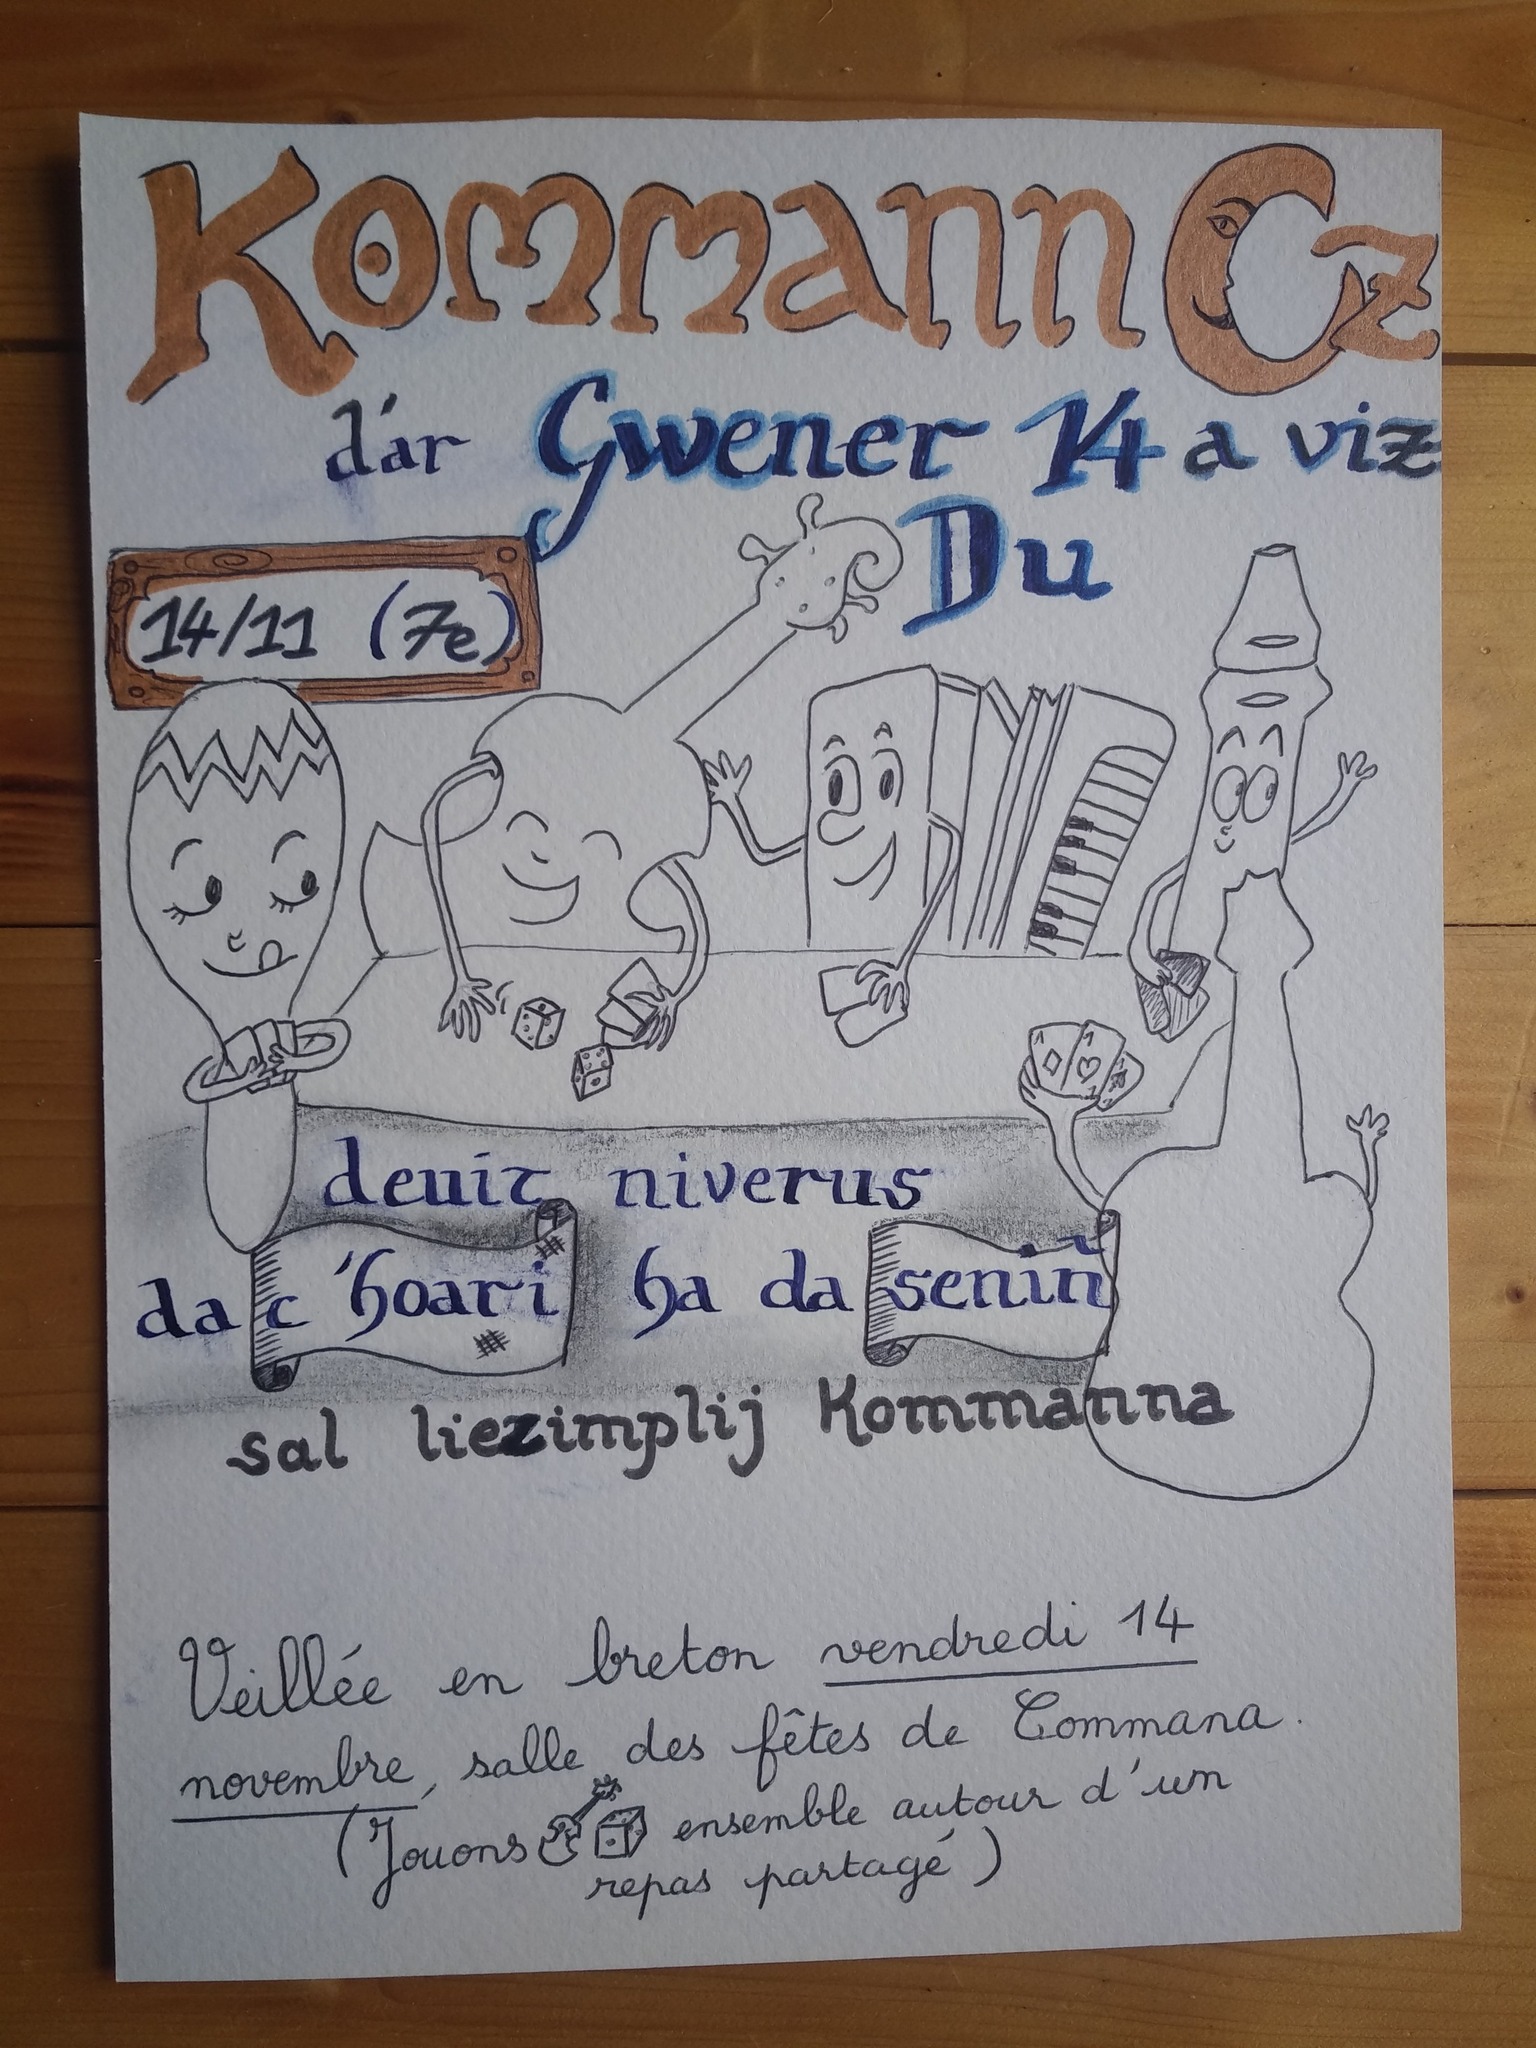 Kommann Oz
d'ar Gwener 14 a viz
Du
14/11 (7e)
deuit niverus
da c'hoari ha da seniñ
sal liezimplij Kommanna
Veillée en breton vendredi 14
novembre, salle des fêtes de Commana.
(Jouons ensemble autour d'un
repas partagé)